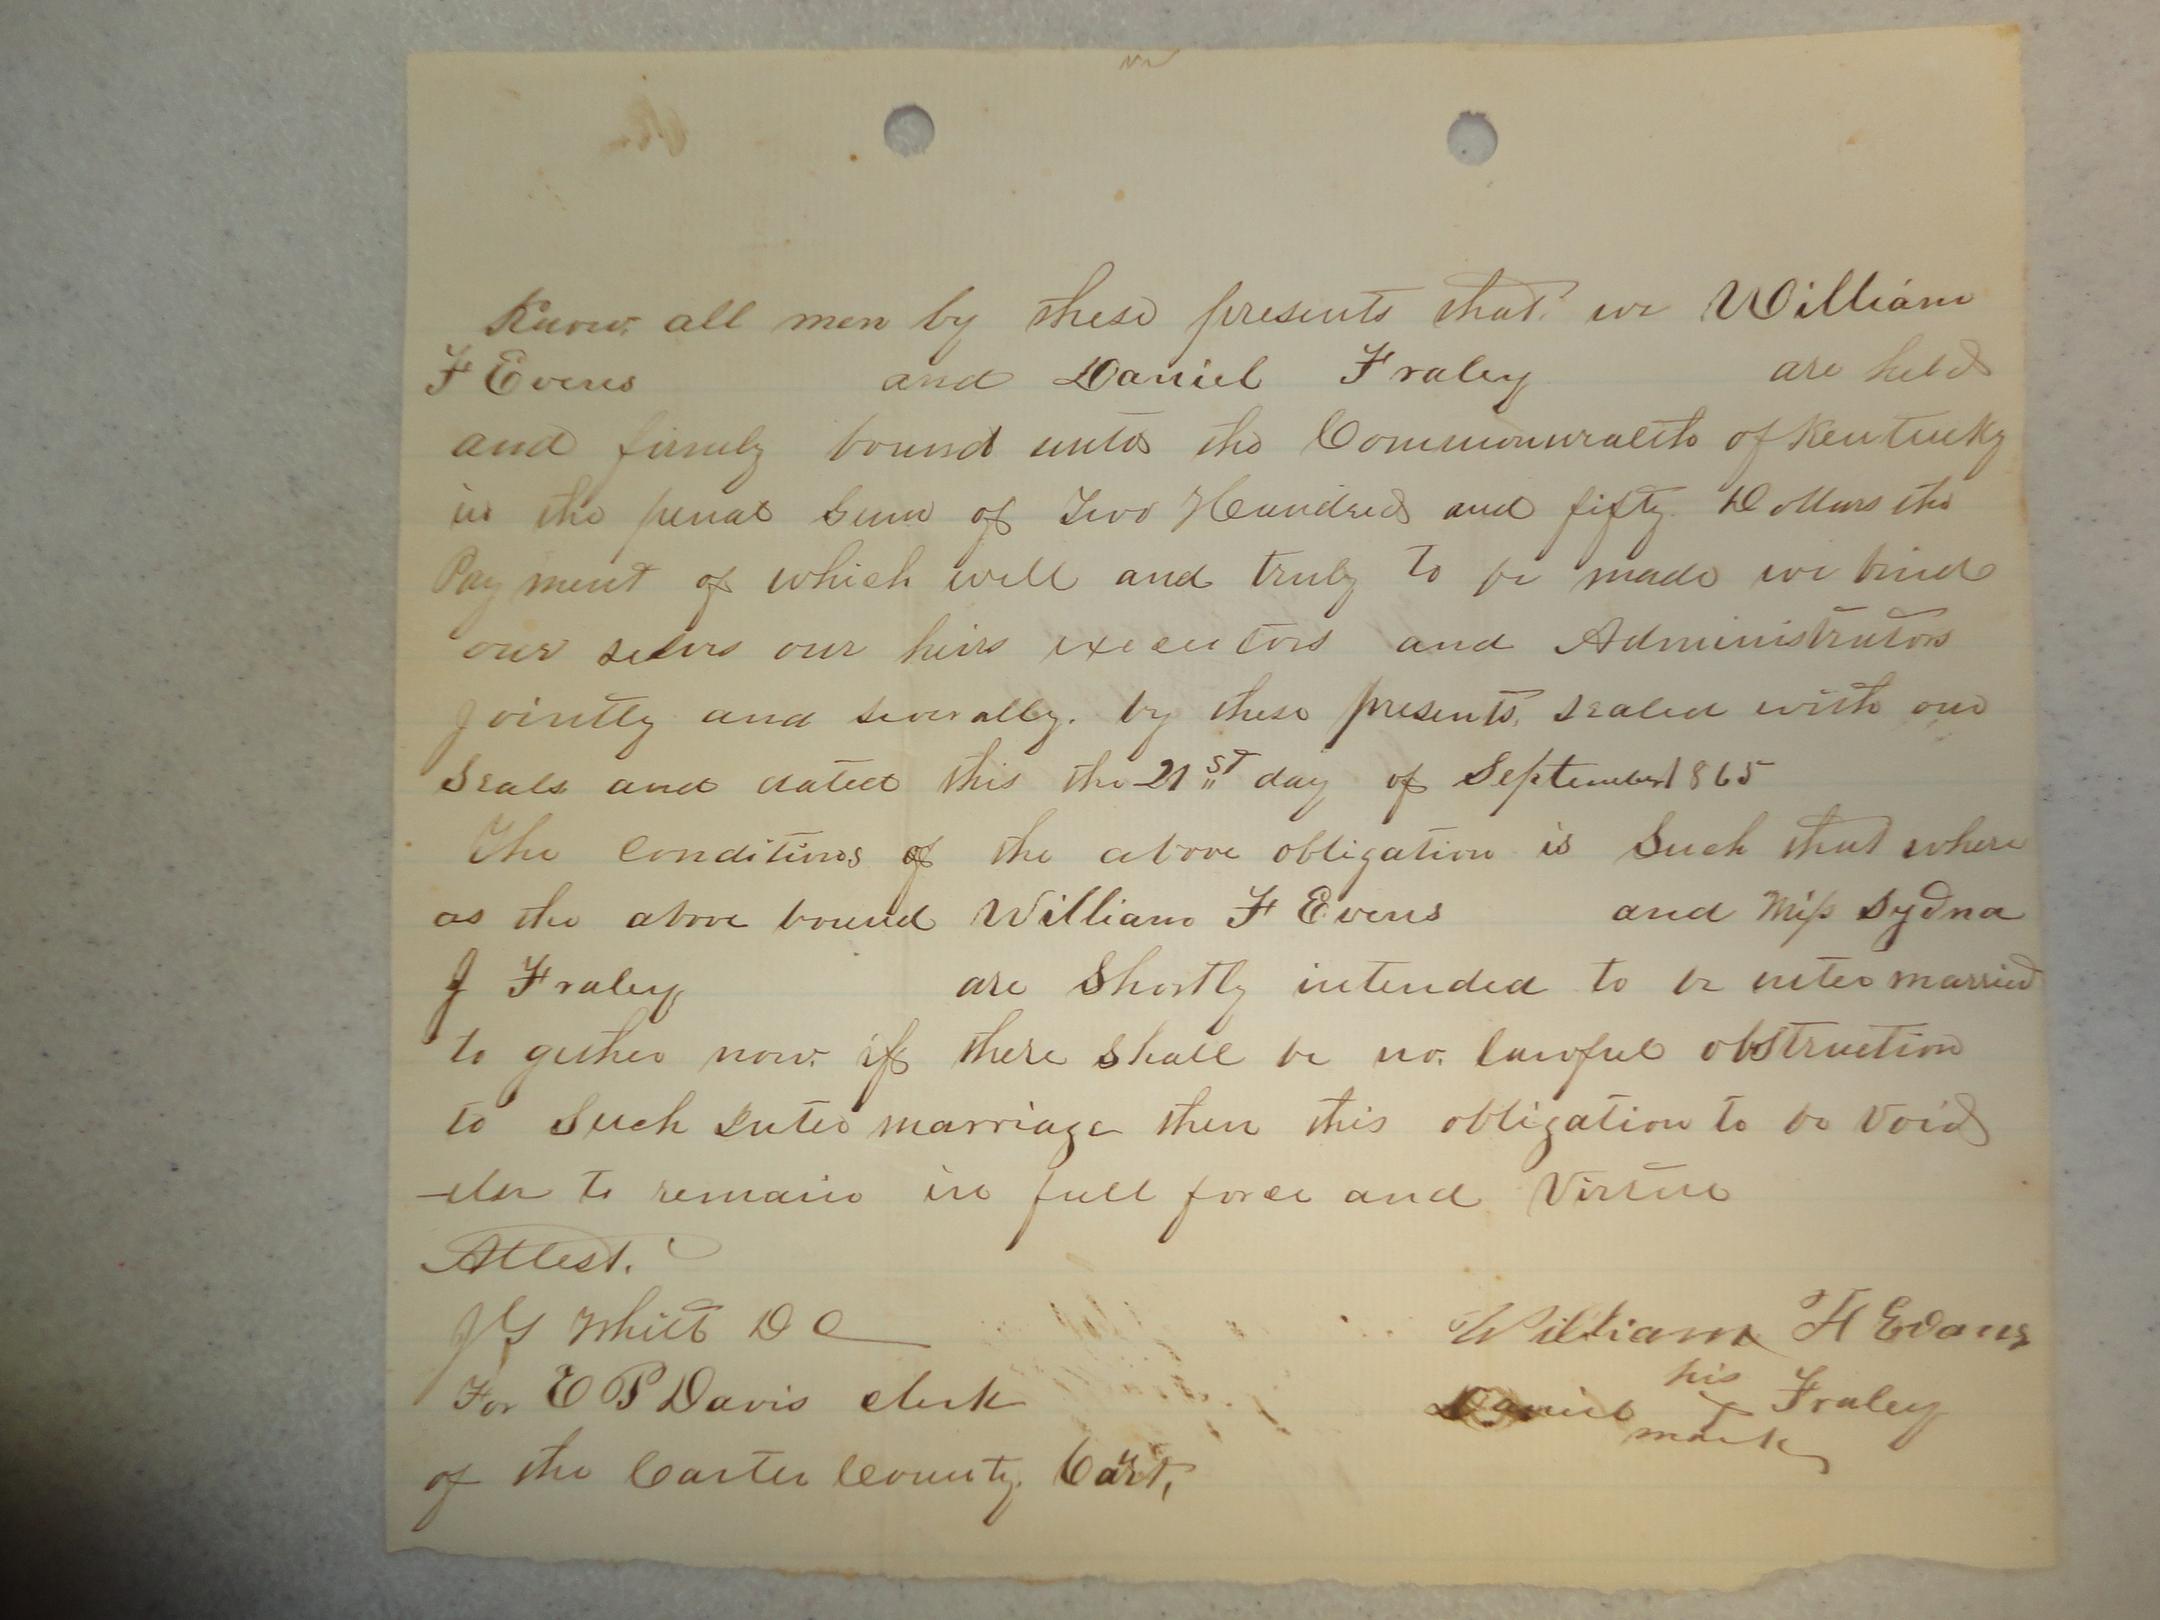 Know all men by these presents that we William
F Evens and Daniel Fraley are held
and firmly bound unto the Commonwealth of Kentucky
in the penal sum of Two Hundred and fifty Dollars the
Pay ment of which well and truly to be made we bind
our selvs our heirs executors and Administrators
jointly and severally. by these presents, sealed with our
Seals and dated this the 21st day of September 1865
The conditions of the above obligation is Such that where
as the above bound William F Evens and Miss Sydna
J Fraley are Shortly intended to be inter married
to gether now if there Shall be no lawful obstruction
to Such Inter marriage then this obligation to be Void
else to remain in full force and Virtue
Attest.
J G Whitt D C
William F Evans
his
For E P Davis clerk
Daniel X Fraley
mark
of the Carter County Court,